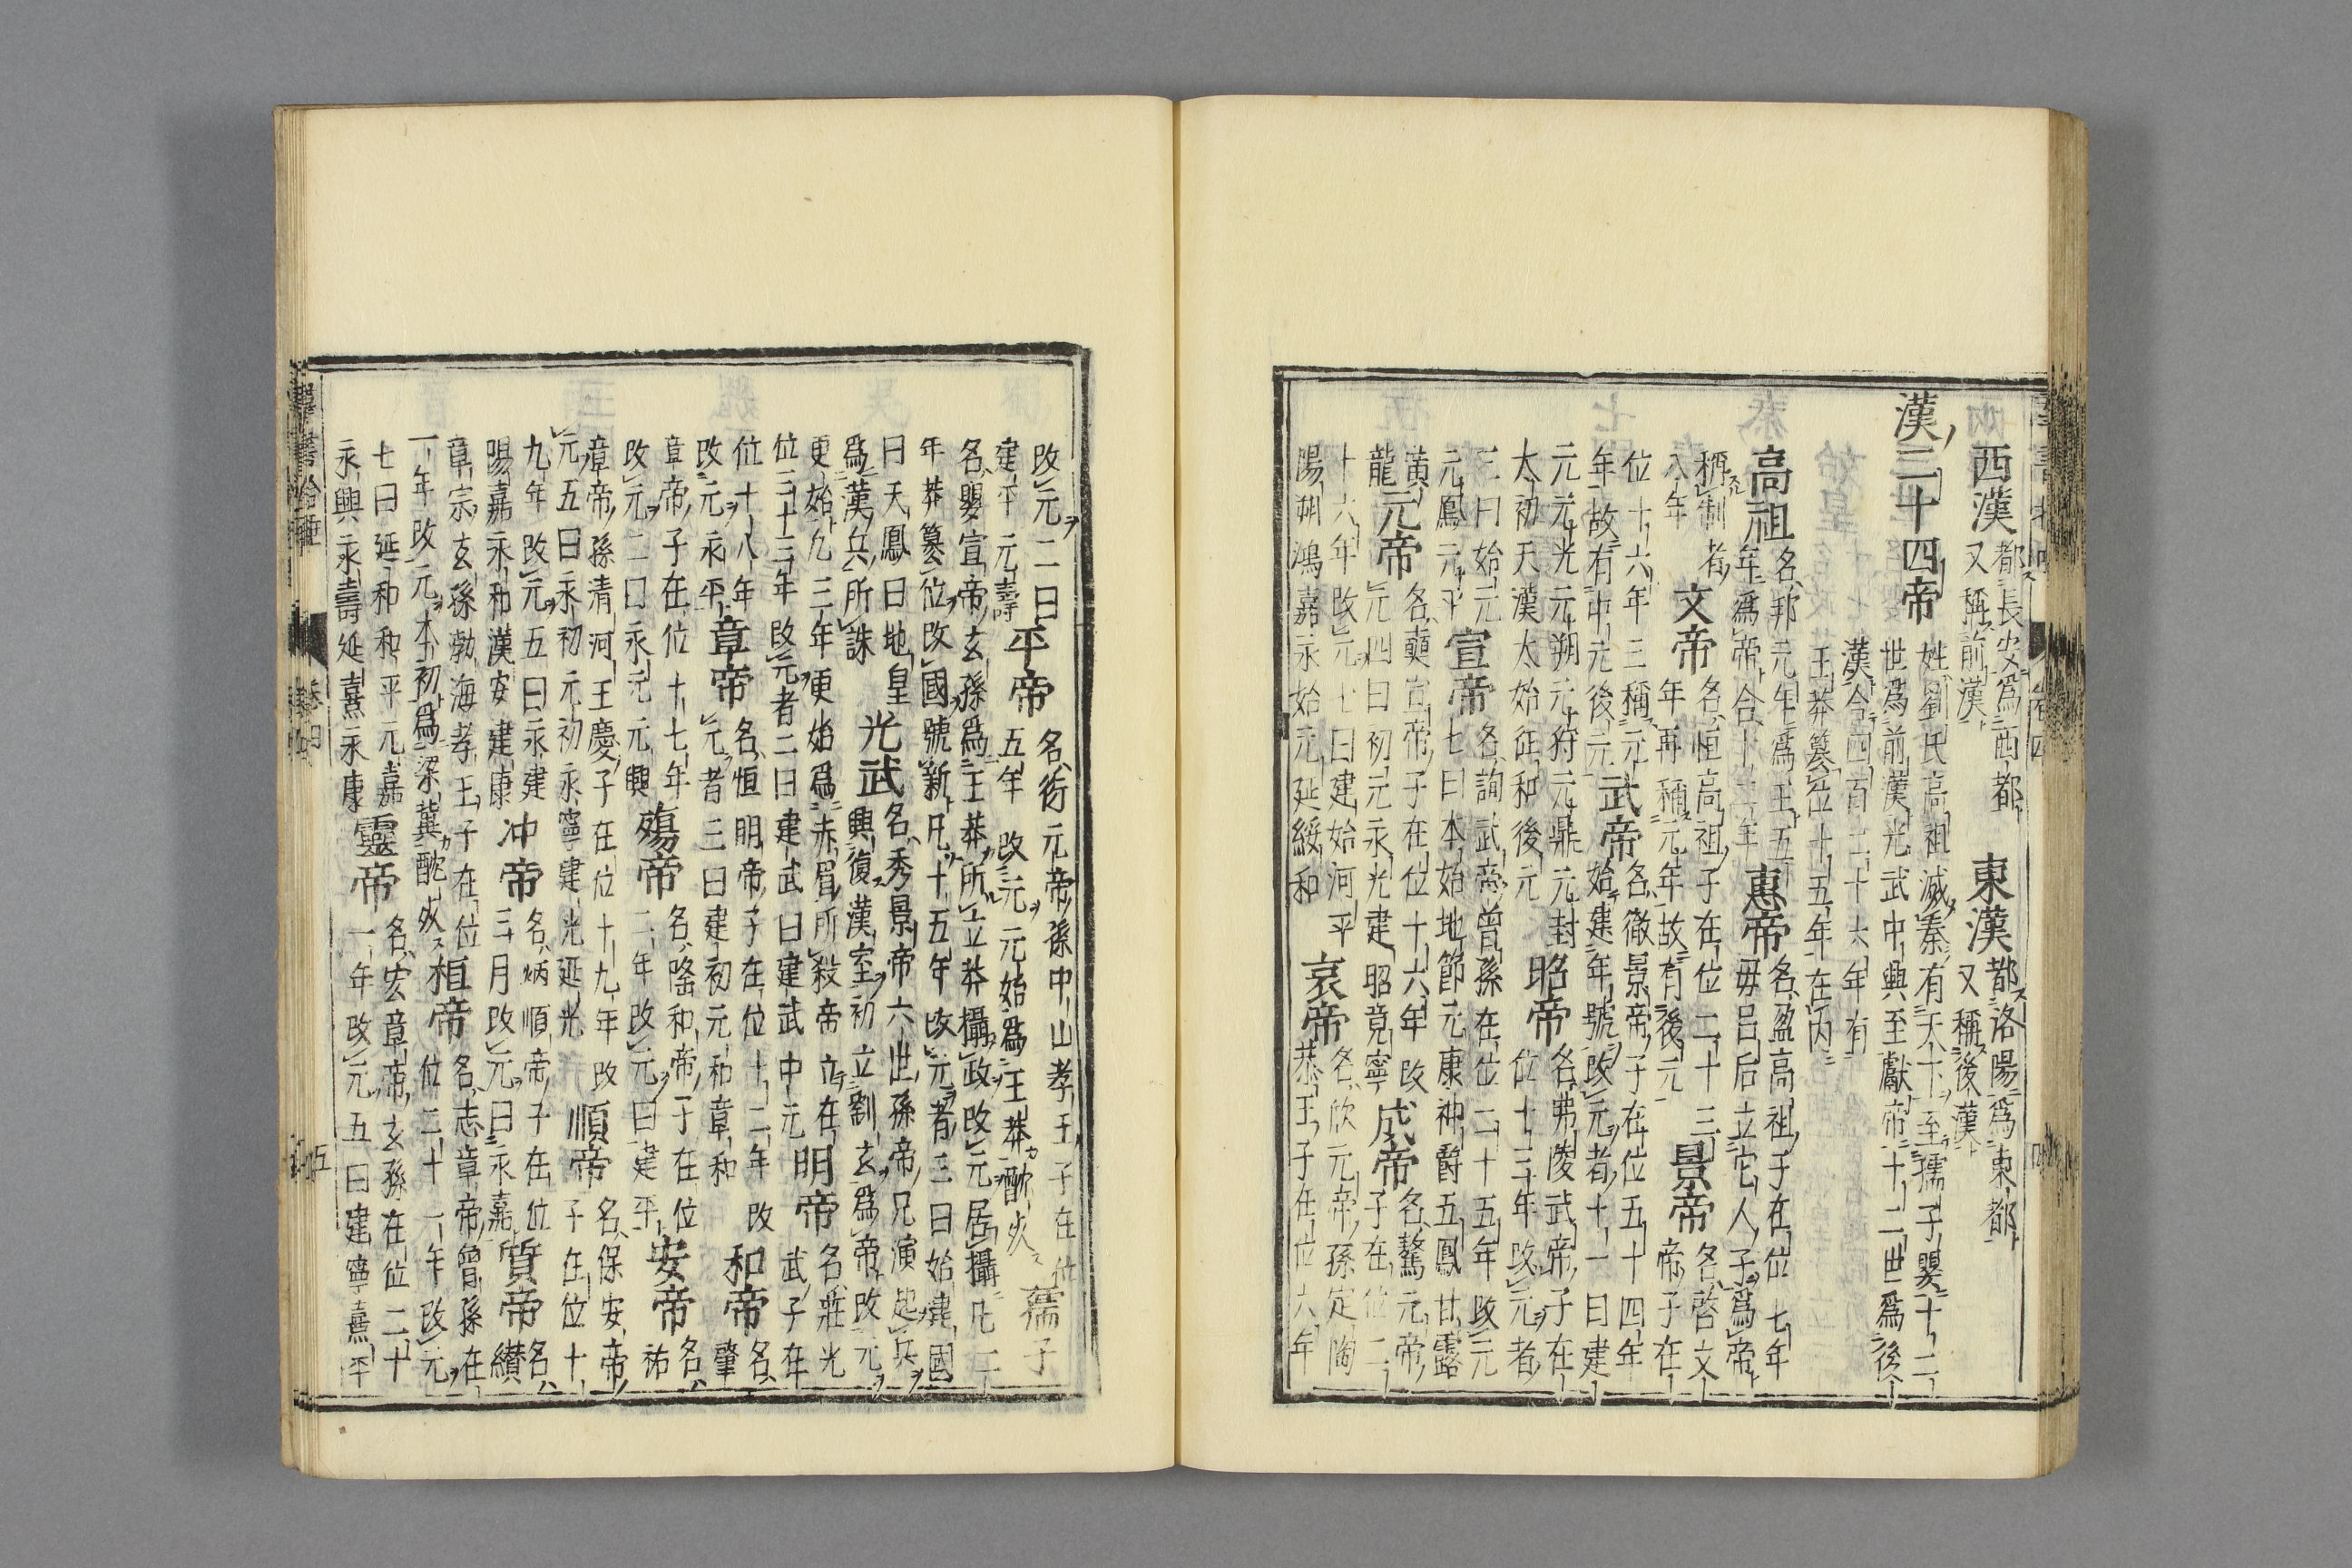 西漢
都長安爲西都
又稱前漢
東漢
都洛陽爲東都
又稱後漢
漢二十四帝
姓劉氏高祖滅秦有天下至孺子嬰十二
世爲前漢光武中興至獻帝十二世爲後
漢合四百二十六年有
王莽簒位十五年在内
高祖
名邦元年爲王五
年爲帝合十二年
惠帝
名盈高祖子在位七年
毋呂后立它人子爲帝
稱制者
八年
文帝
名恒高祖子在位二十三
年再稱元年故有後元
景帝
名啓文
帝子在
位十六年三稱元
年故有中元後元
武帝
名徹景帝子在位五十四年
始建年號改元者十一曰建
元元光元朔元狩元鼎元封
太初天漢太始征和後元
昭帝
名弗陵武帝子在
位十三年改元者
三曰始元
元鳳元平
宣帝
名詢武帝曾孫在位二十五年改元
七曰本始地節元康神爵五鳳甘露
黄
龍
元帝
名奭宣帝子在位十六年改
元四曰初元永光建昭竟寧
成帝
名驁元帝
子在位二
十六年改元七曰建始河平
陽朔鴻嘉永始元延綏和
哀帝
名欣元帝孫定陶
恭王子在位六年
改元二曰
建平元壽
平帝
名衎元帝孫中山孝王子在位
五年改元元始爲王莽酖死
孺子
名嬰宣帝玄孫爲王莽所立莽攝政改元居攝凡二
年莽簒位改國號新凡十五年改元者三曰始建國
曰天鳳曰地皇
爲漢兵所誅
光武
名秀景帝六世孫帝兄演起兵
興復漢室初立劉玄爲帝改元
更始凡三年更始爲赤眉所殺帝立在
位三十三年改元者二曰建武曰建武中元
明帝
名莊光
武子在
位十八年
改元永平
章帝
名恒明帝子在位十二年改
元者三曰建初元和章和
和帝
名
肇
章帝子在位十七年
改元二曰永元元興
殤帝
名隆和帝子在位
二年改元曰建平
安帝
名
祐
章帝孫清河王慶子在位十九年改
元五曰永初元初永寧建光延光
順帝
名保安帝
子在位十
九年改元五曰永建
陽嘉永和漢安建康
冲帝
名炳順帝子在位
三月改元曰永嘉
質帝
名
纉
章宗玄孫勃海孝王子在位
一年改元本初爲梁冀酖死
桓帝
名志章帝曾孫在
位二十一年改元
七曰延和和平元嘉
永興永壽延熹永康
靈帝
名宏章帝玄孫在位二十
一年改元五曰建寧熹平
羣書拾唾
卷四
五